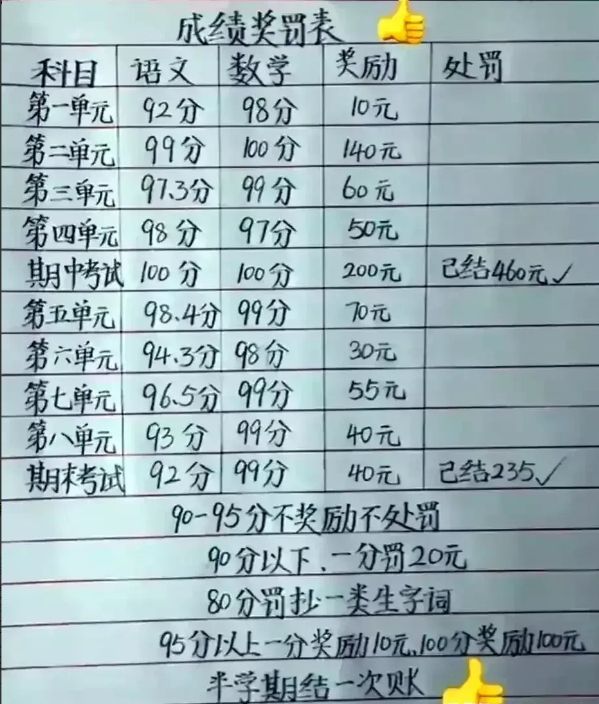 成绩奖罚表
科目 语文 数学 奖励 处罚
第一单元 92分 98分 10元
第二单元 99分 100分 140元
第三单元 97.3分 99分 60元
第四单元 98分 97分 50元
期中考试 100分 100分 200元 已结460元✓
第五单元 98.4分 99分 70元
第六单元 94.3分 98分 30元
第七单元 96.5分 99分 55元
第八单元 93分 99分 40元
期末考试 92分 99分 40元 已结235✓
90-95分不奖励不处罚
90分以下.一分罚20元
80分罚抄一类生字词
95分以上一分奖励10元,100分奖励100元
半学期结一次账